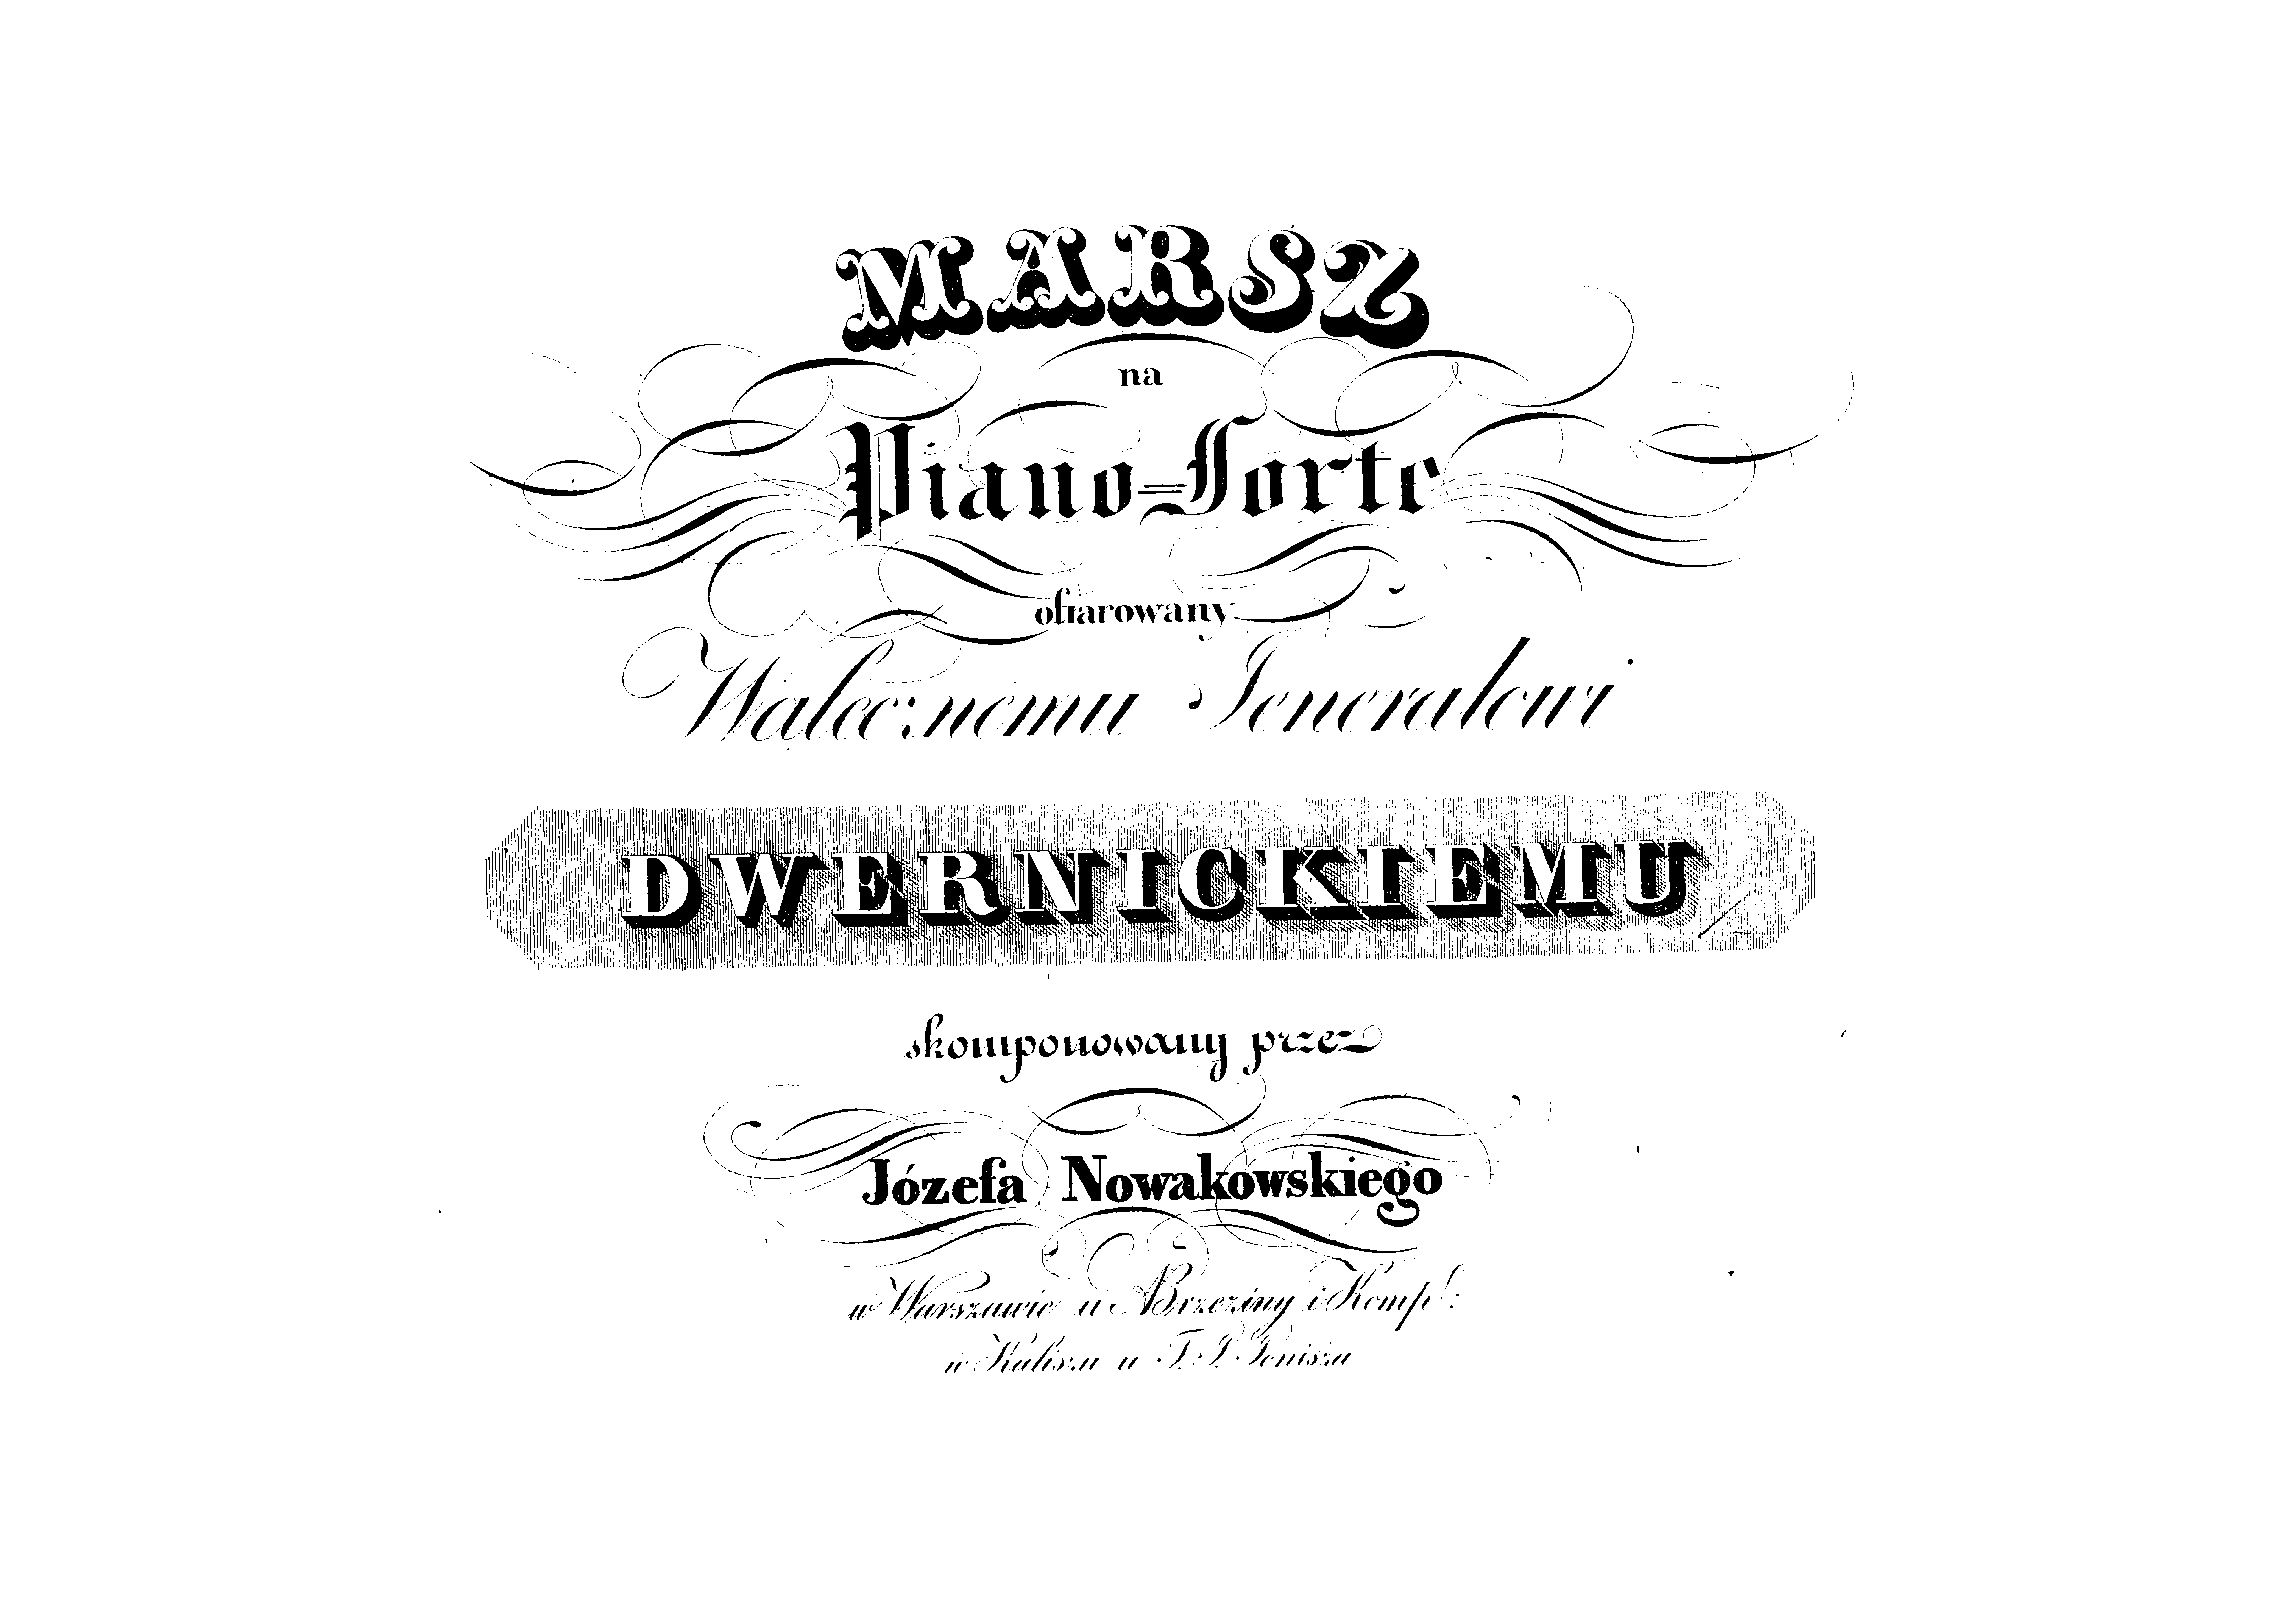 MARSZ
na
Piano=Forte
ofiarowany
Walecznemu Jenerałowi
DWERNICKIEMU
skomponowany przez
Józefa Nowakowskiego
w Warszawie u A Brzeziny i Komp!:
w Kaliszu u T. I. Jenisza